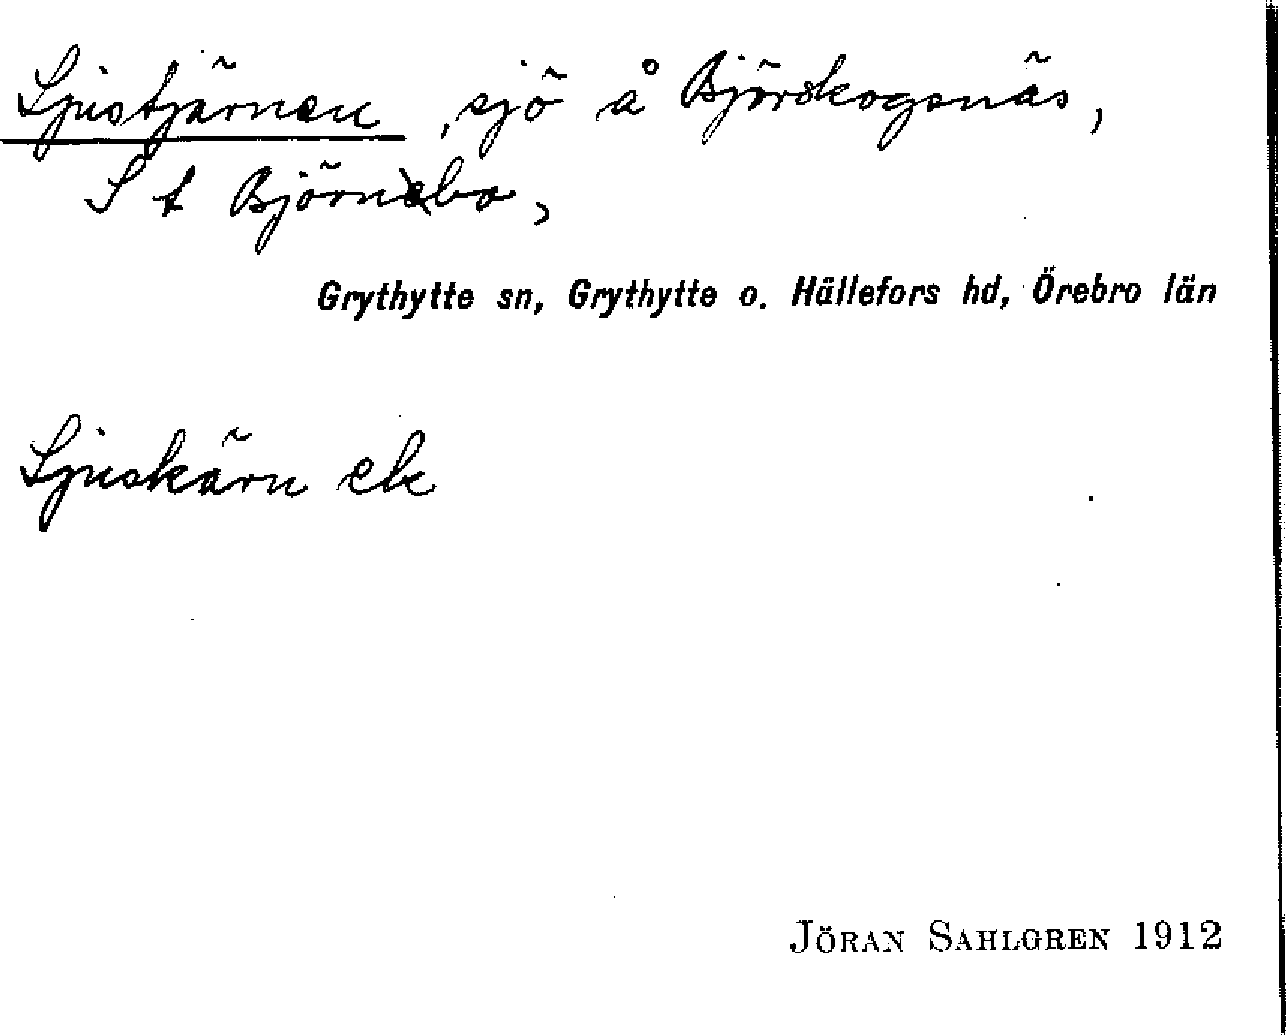 Ljustjärnen, sjö å Björskogsnäs,
S t Björnebo,
Grythytte sn, Grythytte o. Hällefors hd, Örebro län
Ljuskärn ek
JÖRAN SAHLGREN 1912